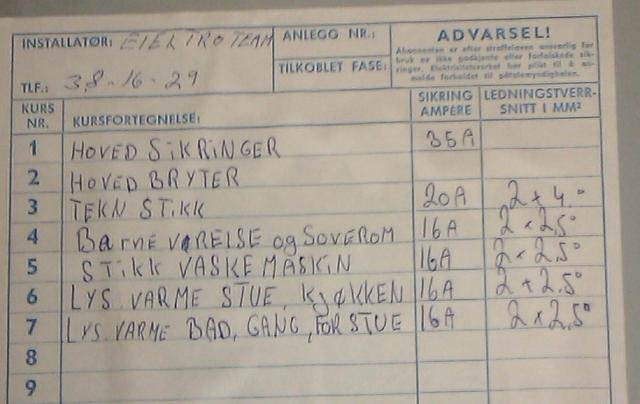 INSTALLATØR: ElEKTROTEAM ANLEGG NR.: ADVARSEL!
Abonnenten er efter straffeloven ansvarlig for
bruk av ikke godkjente eller forfalskede sik-
ringer. Elektrisitetsverket har plikt til å an-
melde forholdet til påtalemyndigheten.
TILKOBLET FASE:
TLF.: 38-16-29
KURS NR. KURSFORTEGNELSE: SIKRING AMPERE LEDNINGSTVERR-SNITT I MM²
1 HOVED SiKRiNGER 35A
2 HOVED BRYTER
3 TEKN STiKK 20A 2 x 4,0
4 BaRNE VæRELSE og SOVEROM 16A 2 x 2,5°
5 STiKK VASKE MASKiN 16A 2 x 2,5°
6 LYS VARME STUE, KJØKKEN 16A 2 x 2,5°
7 LYS VARME BAD, GANG, FORSTUE 16A 2 x 2,5°
8
9